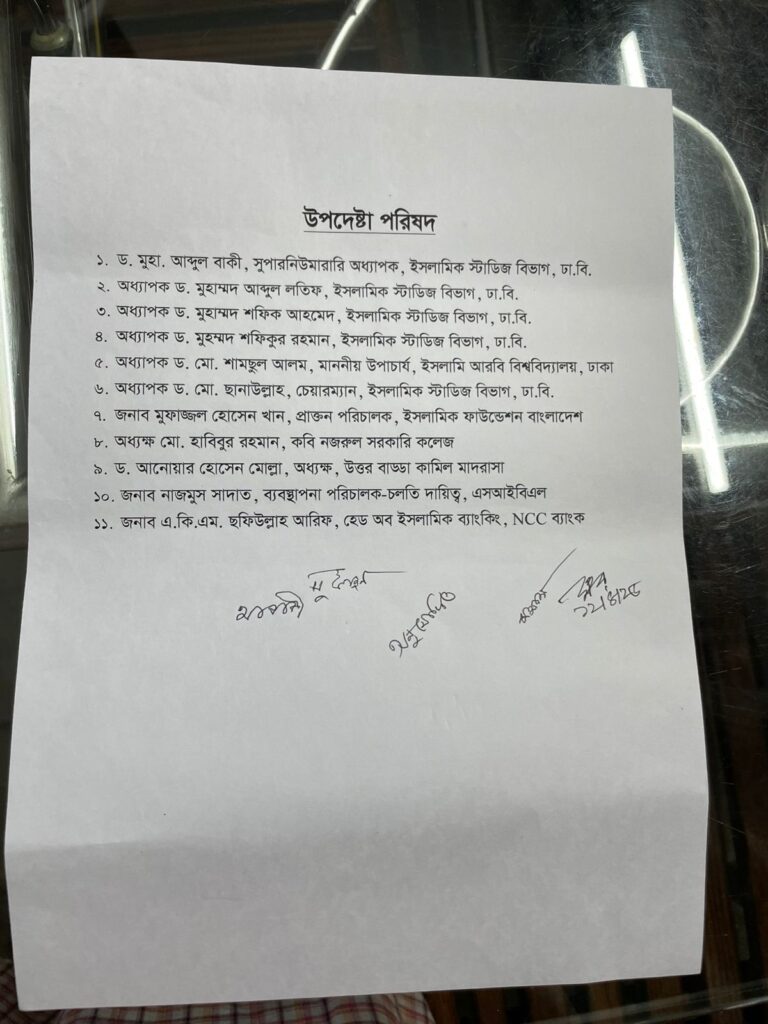 উপদেষ্টা পরিষদ
১. ড. মুহা. আব্দুল বাকী, সুপারনিউমারারি অধ্যাপক, ইসলামিক স্টাডিজ বিভাগ, ঢা.বি.
২. অধ্যাপক ড. মুহাম্মদ আব্দুল লতিফ, ইসলামিক স্টাডিজ বিভাগ, ঢা.বি.
৩. অধ্যাপক ড. মুহাম্মদ শফিক আহমেদ, ইসলামিক স্টাডিজ বিভাগ, ঢা.বি.
৪. অধ্যাপক ড. মুহম্মদ শফিকুর রহমান, ইসলামিক স্টাডিজ বিভাগ, ঢা.বি.
৫. অধ্যাপক ড. মো. শামছুল আলম, মাননীয় উপাচার্য, ইসলামি আরবি বিশ্ববিদ্যালয়, ঢাকা
৬. অধ্যাপক ড. মো. ছানাউল্লাহ, চেয়ারম্যান, ইসলামিক স্টাডিজ বিভাগ, ঢা.বি.
৭. জনাব মুফাজ্জল হোসেন খান, প্রাক্তন পরিচালক, ইসলামিক ফাউন্ডেশন বাংলাদেশ
৮. অধ্যক্ষ মো. হাবিবুর রহমান, কবি নজরুল সরকারি কলেজ
৯. ড. আনোয়ার হোসেন মোল্লা, অধ্যক্ষ, উত্তর বাড্ডা কামিল মাদরাসা
১০. জনাব নাজমুস সাদাত, ব্যবস্থাপনা পরিচালক-চলতি দায়িত্ব, এসআইবিএল
১১. জনাব এ.কি.এম. ছফিউল্লাহ আরিফ, হেড অব ইসলামিক ব্যাংকিং, NCC ব্যাংক
অনুমোদিত